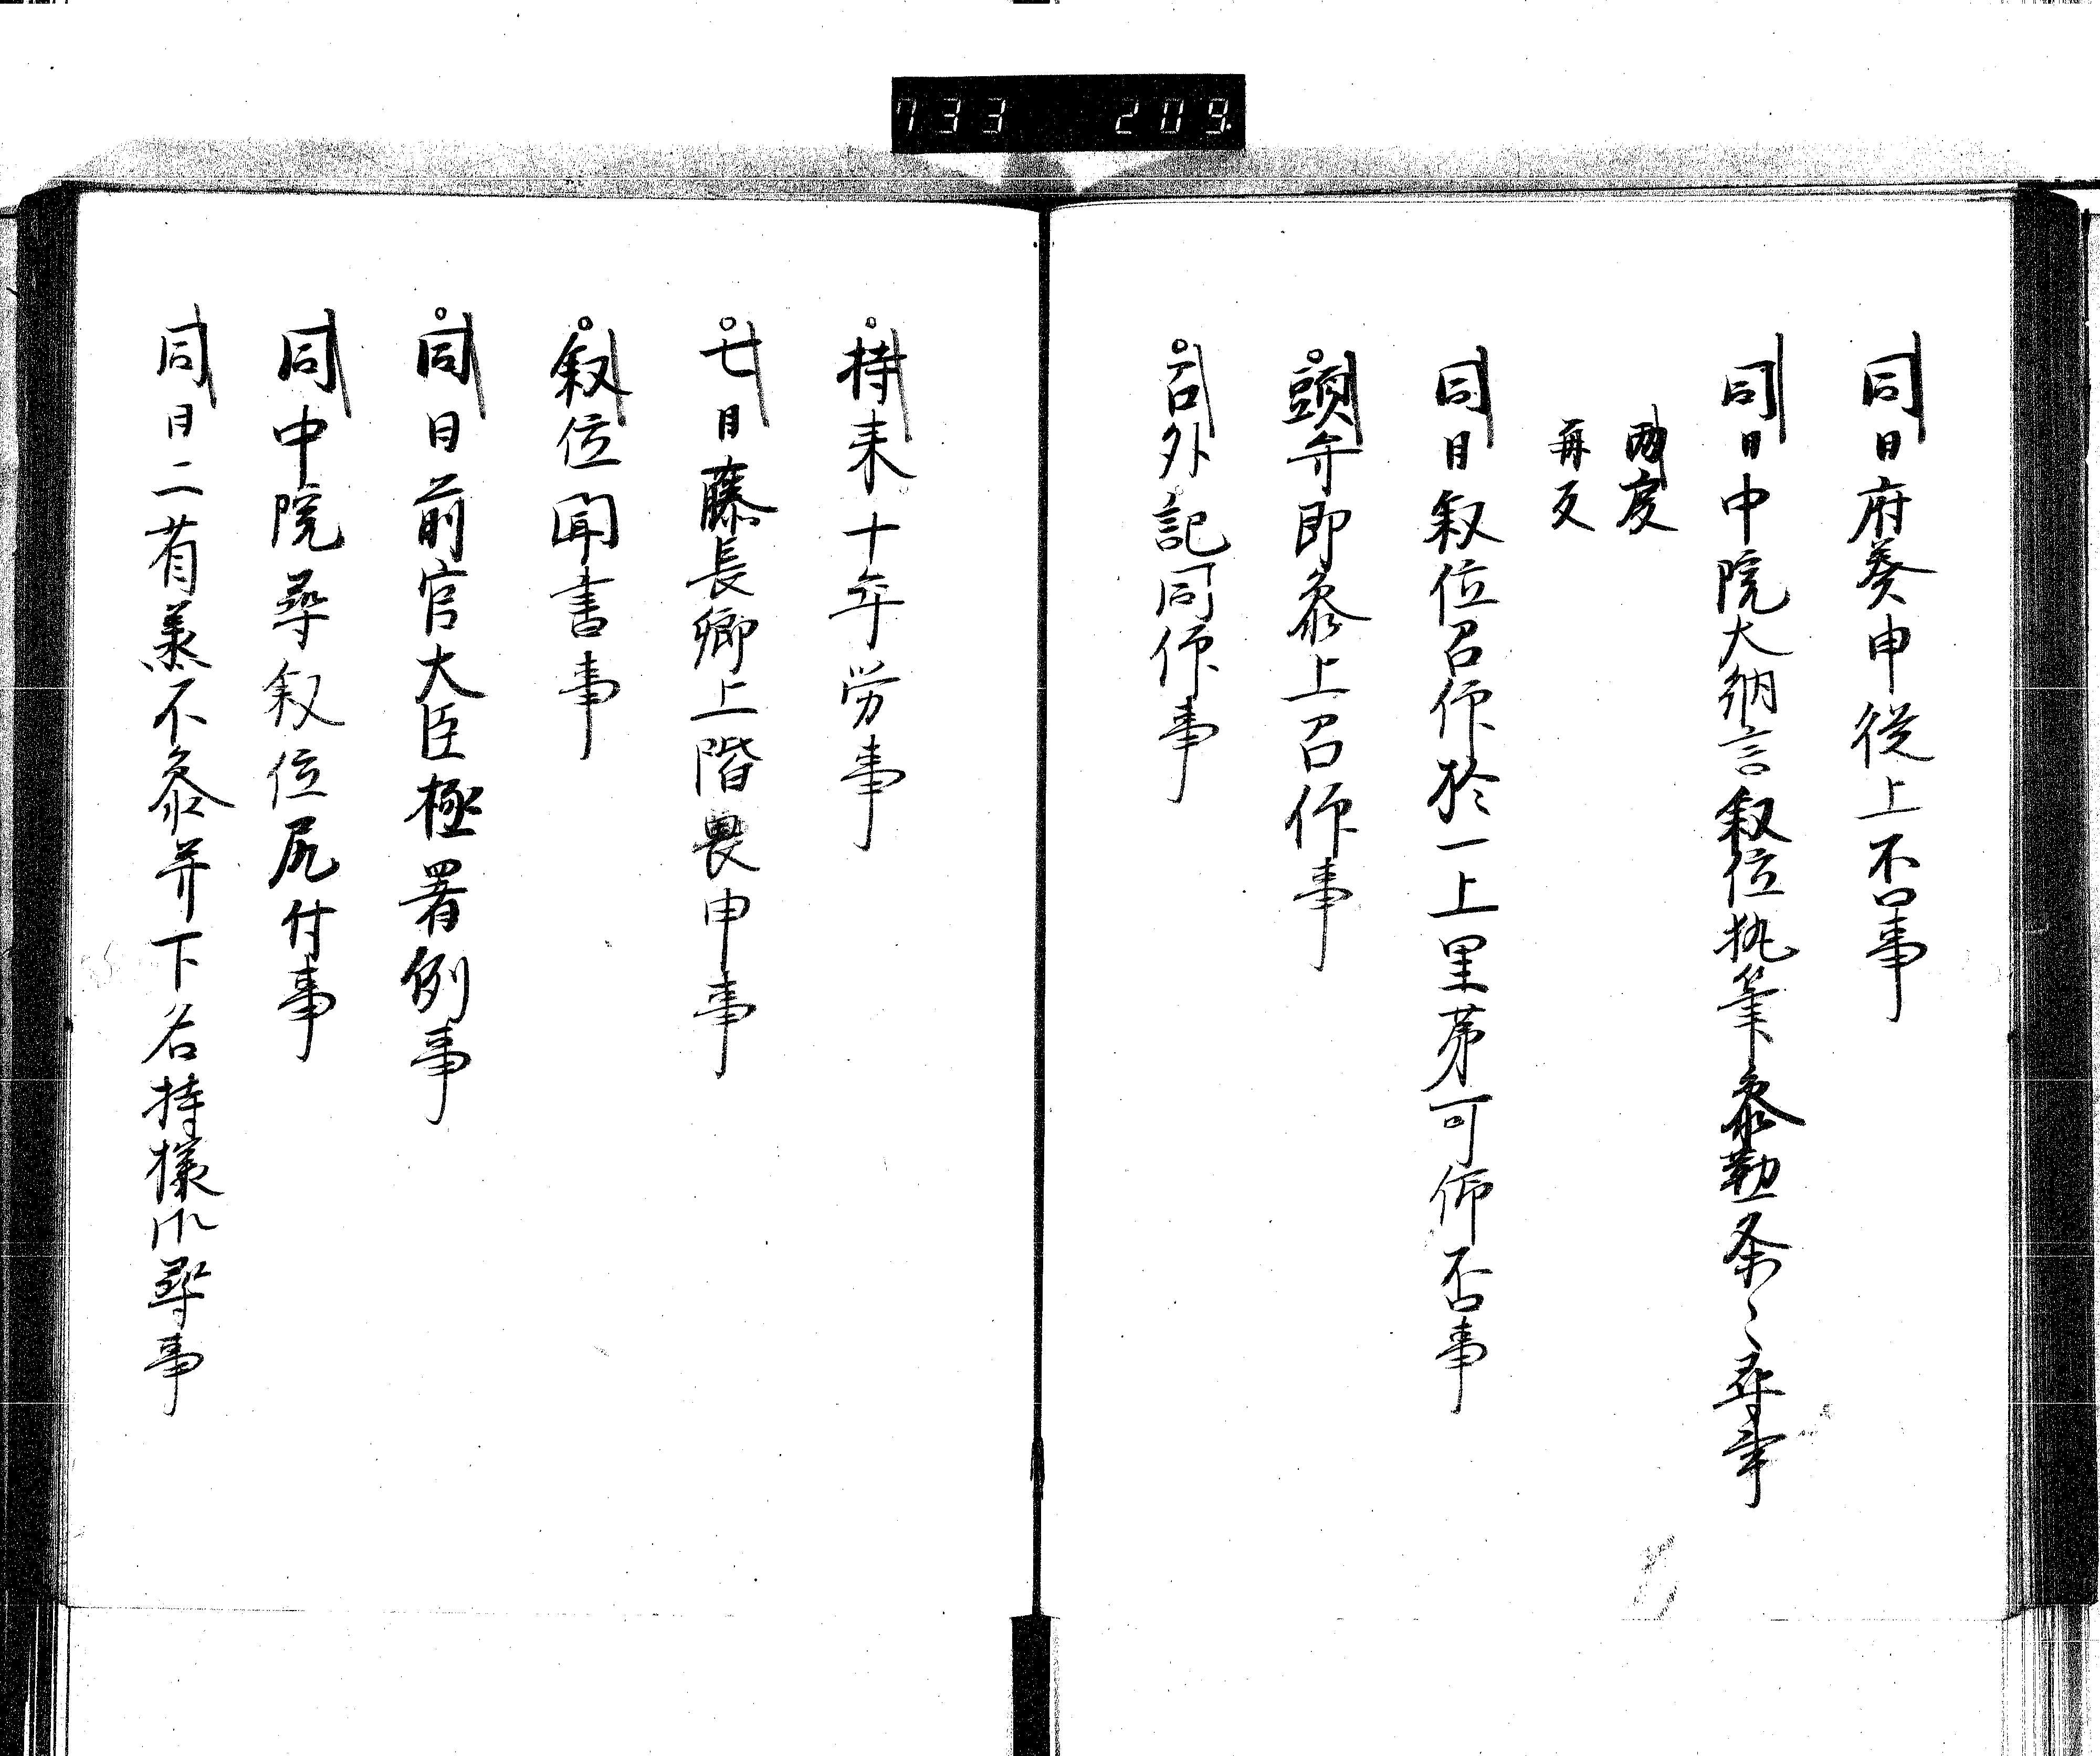 733 209
同日府奏申従上不吉事
同日中院大納言叙位執筆参勤条々尋事
両度
再反
同日叙位召仰於一上里第可仰否事
頭弁即参上召仰事
召外記同仰事
持来十年労事
七日藤長卿上階畏申事
叙位聞書事
同日前官大臣極署例事
同中院尋叙位尻付事
同日二省丞不参并下名持様以下尋事